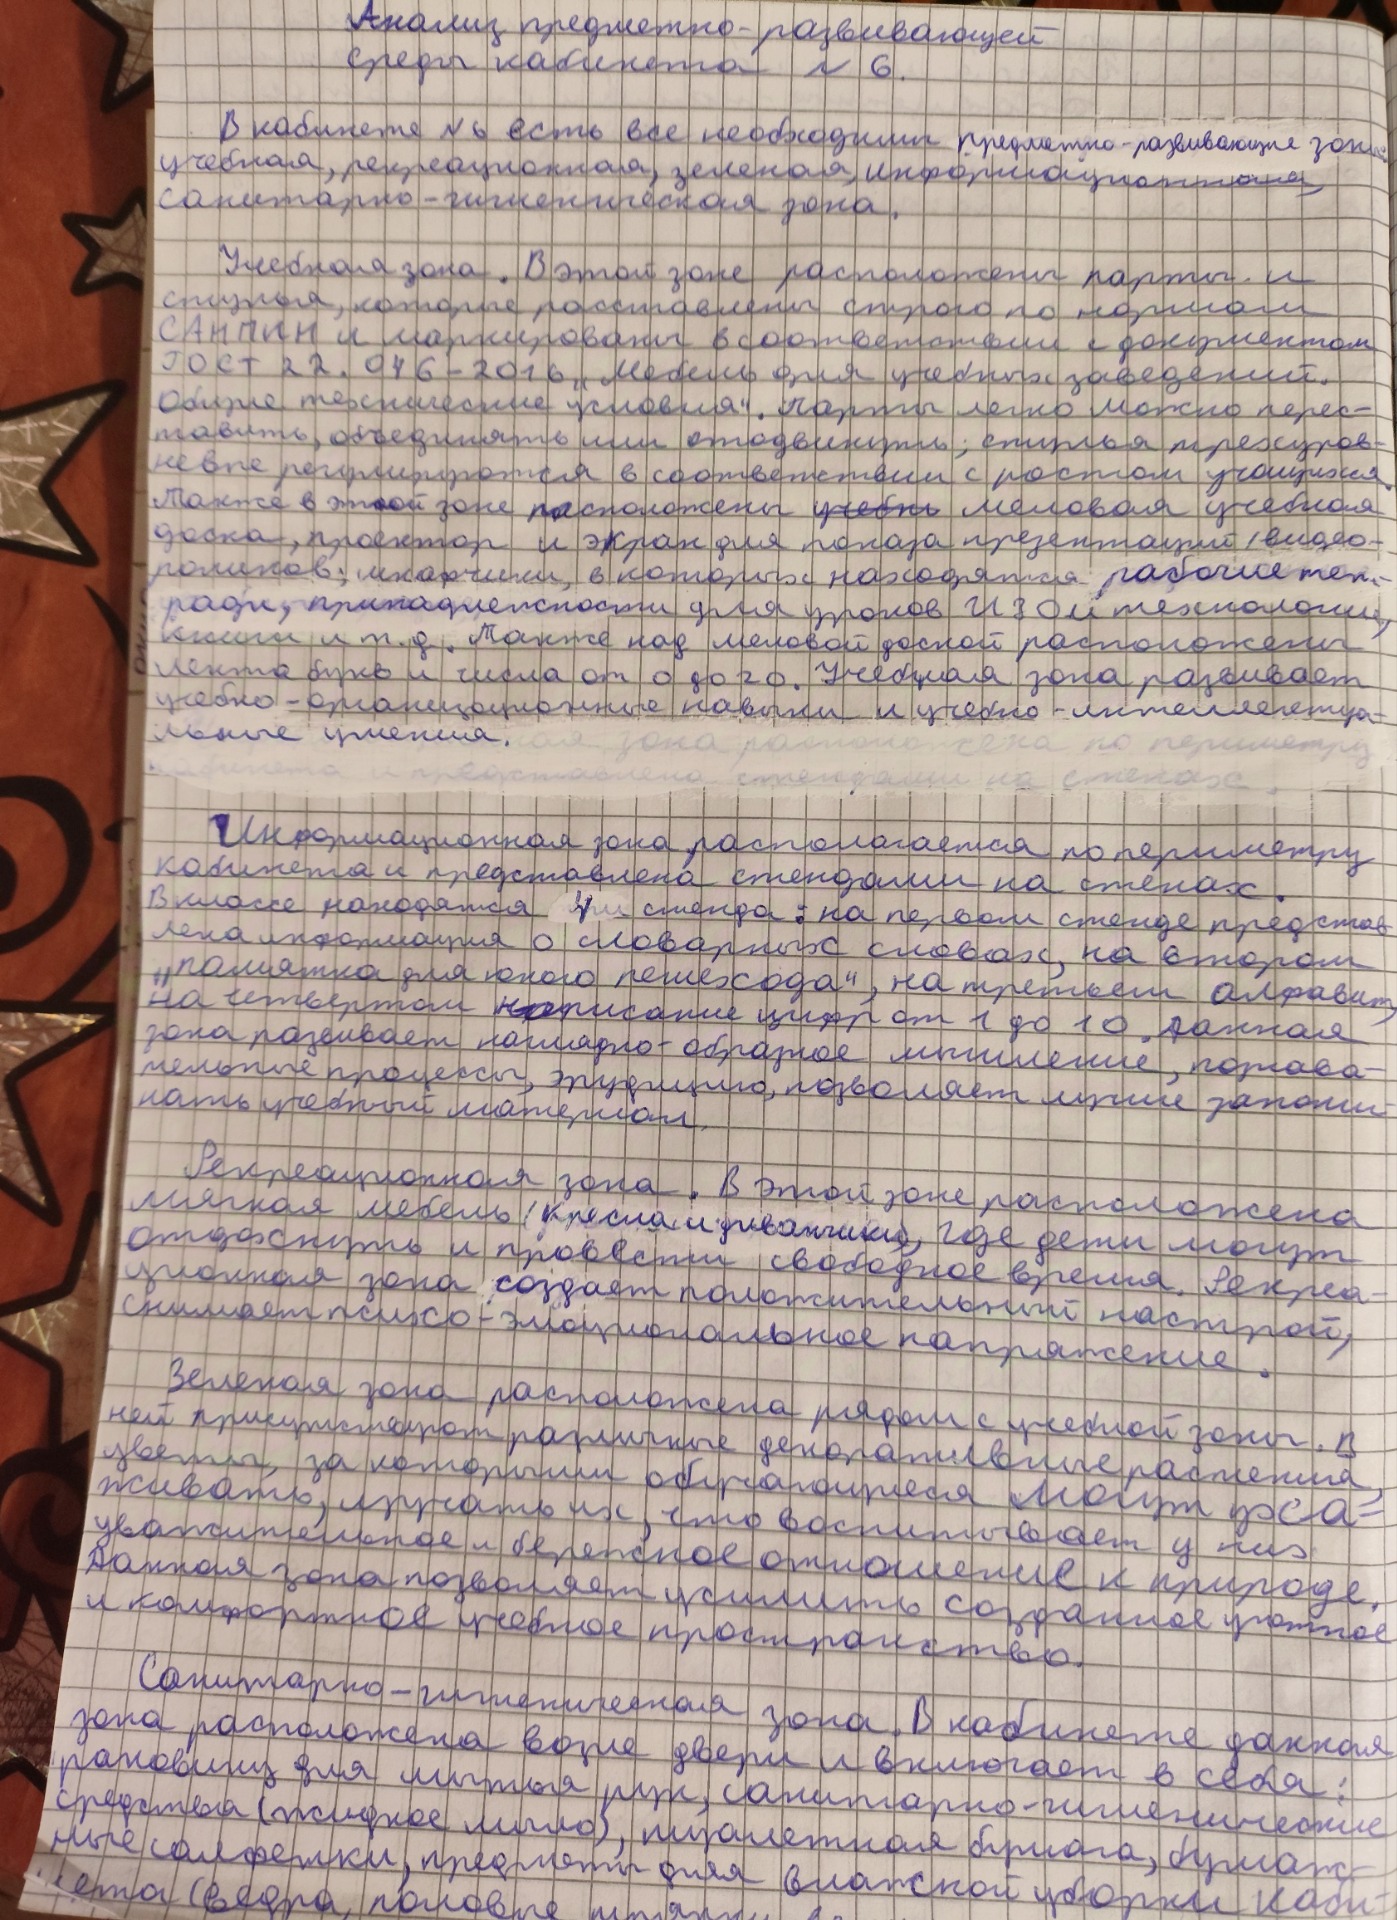 Анализ предметно-развивающей
среды кабинета № 6.
В кабинете №6 есть все необходимы предметно-развивающие зоны:
учебная, рекреационная, зеленая, информационная,
санитарно-гигиеническая зона.
Учебная зона. В этой зоне расположены парты и
стулья, которые расставлены строго по нормам
САНПИН и маркированы в соответствии с документом
ГОСТ 22.046-2016 „Мебель для учебных заведений.
Общие технические условия“. Парты легко можно перес-
тавить, объединять или отодвинуть; стулья трехуров-
невые регулируются в соответствии с ростом учащихся.
Также в этой зоне расположены учебн меловая учебная
доска, проектор и экран для показа презентаций, видео-
роликов; шкафчики, в которых находятся рабочие тет-
ради, принадлежности для уроков ИЗО и технологии,
книги и т.д. Также над меловой доской расположены
лента букв и числа от 0 до 20. Учебная зона развивает
учебно-организационные навыки и учебно-интеллектуа-
льные умения.
ная зона расположена по периметру
кабинета и представлена стендами на стенах.
Информационная зона располагается по периметру
кабинета и представлена стендами на стенах.
В классе находятся 4 стенда: на первом стенде представ
лена информация о словарных словах, на втором
„памятка для юного пешехода“, на третьем алфавит,
на четвертом написание цифр от 1 до 10. Данная
зона развивает наглядно-образное мышление, познава-
тельные процессы, эрудицию, позволяет лучше запоми-
нать учебный материал.
Рекреационная зона. В этой зоне расположена
мягкая мебель (кресла и диванчики), где дети могут
отдохнуть и провести свободное время. Рекреа-
ционная зона создает положительный настрой,
снимает психо-эмоциональное напряжение.
Зеленая зона расположена рядом с учебной зоны. В
ней присутствуют различные декоративные растения,
цветы, за которыми обучающиеся могут уха-
живать, изучать их, что воспитывает у них
уважительное и бережное отношение к природе.
Данная зона позволяет усилить созданное уютное
и комфортное учебное пространство.
Санитарно-гигиеническая зона. В кабинете данная
зона расположена возле двери и включает в себя:
раковину для мытья рук, санитарно-гигиенические
средства (жидкое мыло), туалетная бумага, бумаж-
ные салфетки, предметы для влажной уборки каби
нета (ведра, половые